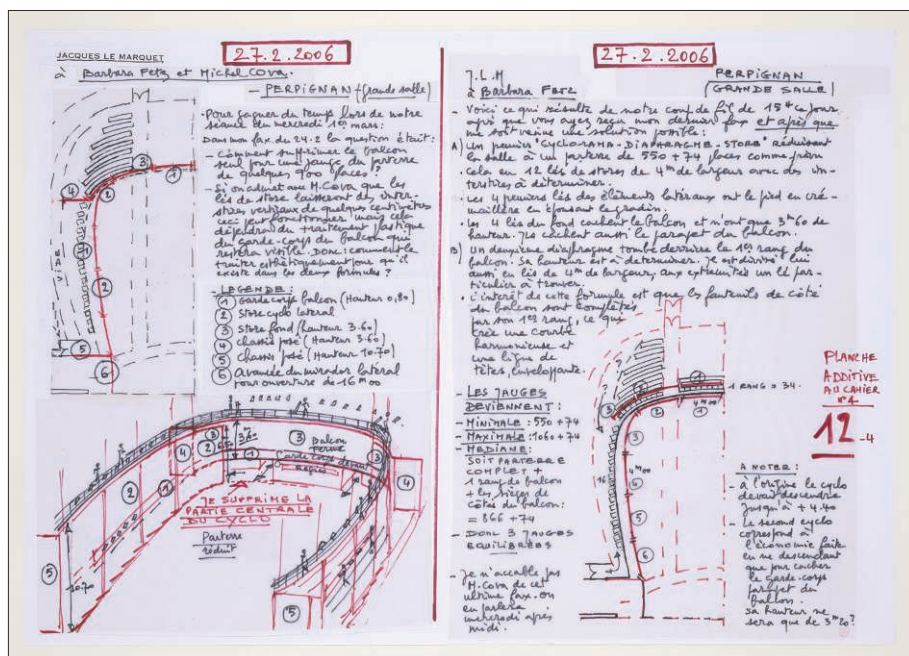 27.2.2006
JACQUES LE MARQUET
à Barbara Fetz et Michel Cova.
— PERPIGNAN (grande salle)
- Pour gagner du temps lors de notre
séance du mercredi 1er mars:
Dans mon fax du 24.2 la question était:
- Comment supprimer le balcon
seul pour une jauge du parterre
de quelques 900 places?
- Si on admet avec M. Cova que les
lés de store laisseront des inter-
stices verticaux de quelques centimètres
ceci peut fonctionner mais cela
dépendra du traitement plastique
du garde-corps du balcon qui
restera visible. Donc: comment le
traiter esthétiquement pour qu'il
existe dans les deux formules?
- LEGENDE:
① Garde corps balcon (Hauteur 0,80)
② Store cyclo lateral
③ Store fond (hauteur 3.60)
④ Chassis posé (Hauteur 3.60)
⑤ Chassis posé (Hauteur 10.70)
⑥ Avancée du mirador lateral
pour ouverture de 16m00
VIDE
④
③
①
②
①
②
⑤
⑥
3.60
③
Balcon
fermé
Garde corps devant
Régie
④
③
②
①
②
①
③
④
JE SUPPRIME LA
PARTIE CENTRALE
DU CYCLO
Parterre
réduit
⑤
10.70
⑤
27.2.2006
J.L.M
à Barbara Fetz
PERPIGNAN
(GRANDE SALLE)
- Voici ce qui résulte de notre coup de fil de 15H ce jour
après que vous ayez reçu mon dernier fax et après que
me soit venue une solution possible:
A) Un premier "CYCLORAMA-DIAPHRAGME-STORE" réduisant
la salle à un parterre de 550+74 places comme prévu
• Cela en 12 lés de stores de 4m de largeur avec des in-
terstices à déterminer.
• Les 4 premiers lés des éléments latéraux ont le pied en cré-
maillère en épousant les gradins.
• Les 4 lés du fond cachent le balcon et n'ont que 3m60 de
hauteur. Ils cachent aussi le parapet du balcon.
B) Un deuxième diaphragme tombe derrière le 1er rang du
balcon: sa hauteur est à déterminer. Il est divisé lui
aussi en lés de 4m de largeur, aux extrémités un lé par-
ticulier à trouver.
• L'intérêt de cette formule est que les fauteuils de côté
du balcon sont complétés
par son 1er rang, ce qui
crée une courbe
harmonieuse et
une ligne de
têtes, enveloppante.
- LES JAUGES
DEVIENNENT:
- MINIMALE: 550+74
- MAXIMALE: 1060+74
- MEDIANE:
SOIT PARTERRE
COMPLET +
1 rang de balcon
+ les sièges de
côtés du balcon:
= 866+74
- DONC 3 JAUGES
EQUILIBRÉES
- Je n'accable pas
M. Cova de cet
ultime fax. On
en parlera
mercredi après
midi.
1 RANG = 34.
4m00
①
②
③
③
4m00
④
⑤
⑥
16
PLANCHE
ADDITIVE
AU CAHIER
N°4
12-4
A NOTER:
- à l'origine le cyclo
devait descendre
jusqu'à +4.40
- Le second cyclo
correspond à
l'économie faite
en ne descendant
que pour cacher
le garde-corps
parapet du
balcon.
Sa hauteur ne
sera que de 3m20?